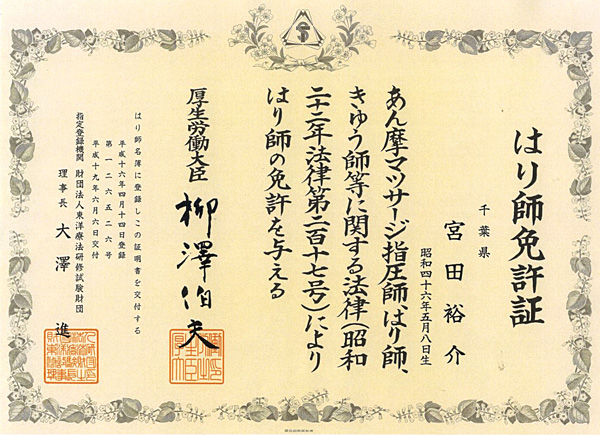 はり師免許証
千葉県
宮田裕介
昭和四十六年五月八日生
あん摩マツサージ指圧師、はり師、
きゆう師等に関する法律(昭和
二十二年法律第二百十七号)により
はり師の免許を与える
厚生労働大臣 柳澤伯夫
はり師名簿に登録しこの証明書を交付する
平成十六年四月十四日登録
第一二六五二六号
平成十九年六月六日交付
指定登録機関 財団法人東洋療法研修試験財団
理事長 大澤進